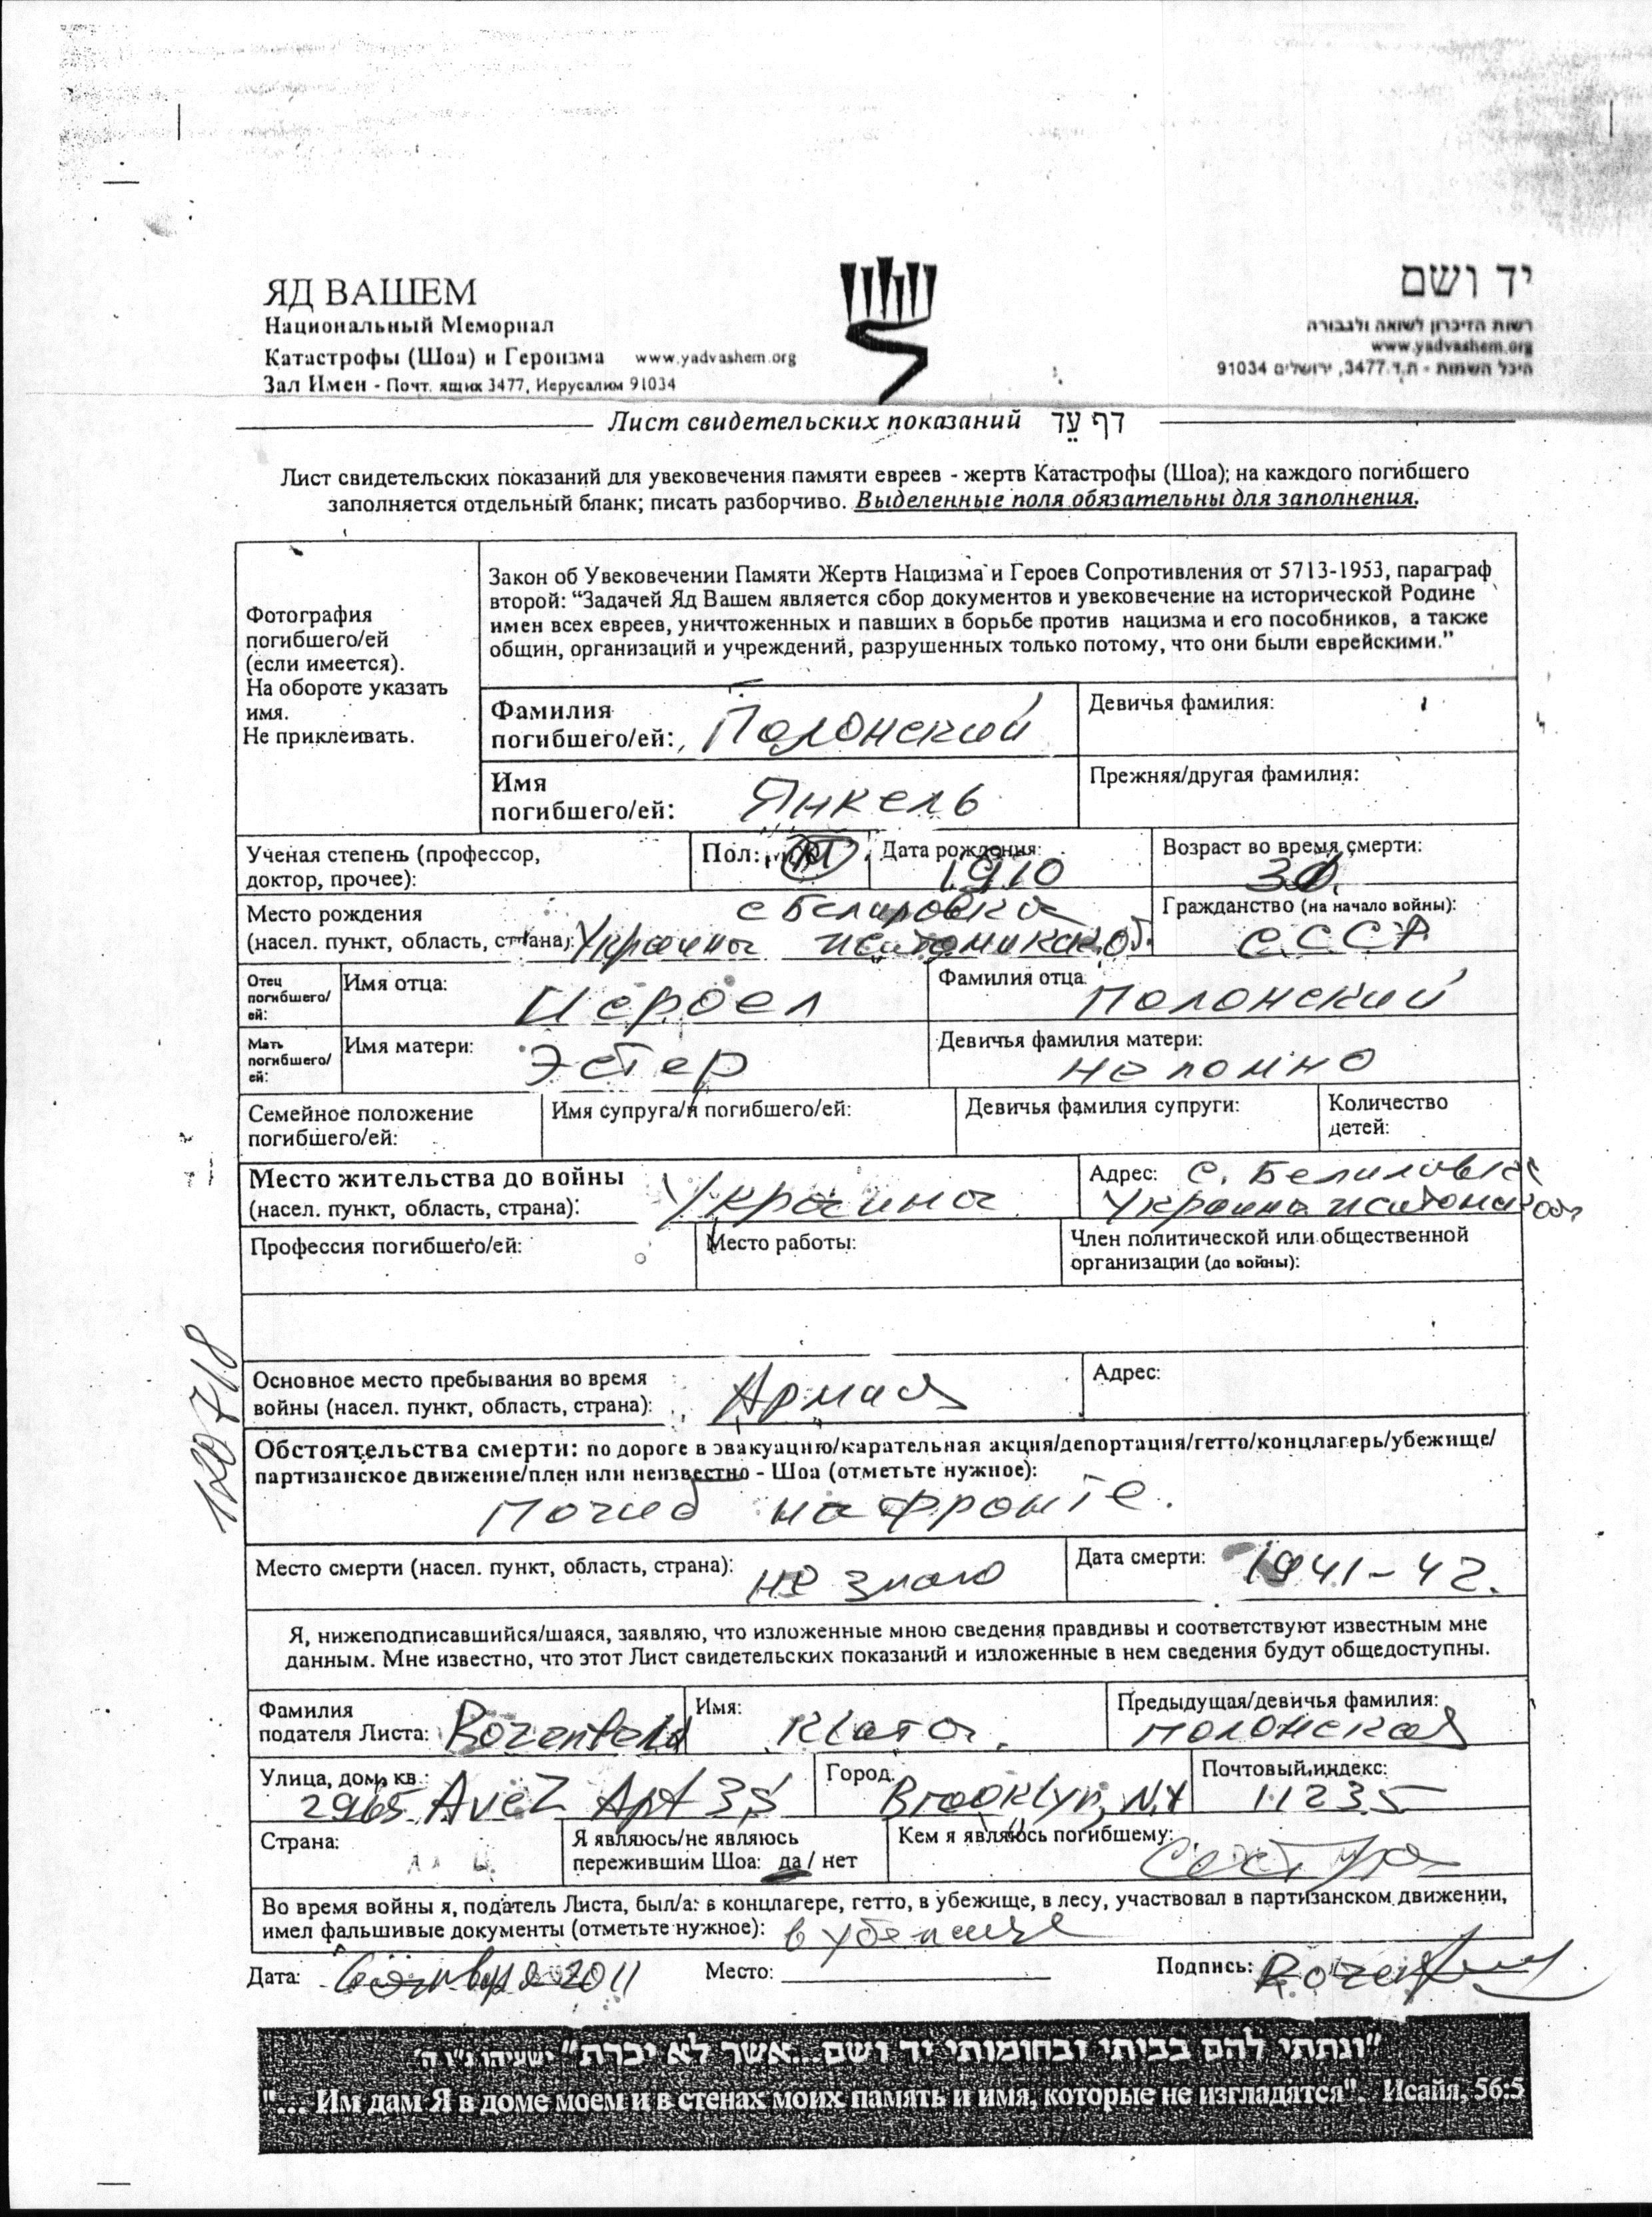 ЯД ВАШЕМ
Национальный Мемориал
Катастрофы (Шоа) и Героизма www.yadvashem.org
Зал Имен - Почт. ящик 3477, Иерусалим 91034
יד ושם
רשות הזיכרון לשואה ולגבורה
www.yadvashem.org
היכל השמות - ת.ד. 3477, ירושלים 91034
Лист свидетельских показаний דף עד
Лист свидетельских показаний для увековечения памяти евреев - жертв Катастрофы (Шоа); на каждого погибшего
заполняется отдельный бланк; писать разборчиво. Выделенные поля обязательны для заполнения.
Фотография
погибшего/ей
(если имеется).
На обороте указать
имя.
Не приклеивать.
Закон об Увековечении Памяти Жертв Нацизма и Героев Сопротивления от 5713-1953, параграф
второй: “Задачей Яд Вашем является сбор документов и увековечение на исторической Родине
имен всех евреев, уничтоженных и павших в борьбе против нацизма и его пособников, а также
общин, организаций и учреждений, разрушенных только потому, что они были еврейскими.”
Фамилия
погибшего/ей: Полонский
Девичья фамилия:
Имя
погибшего/ей: Янкель
Прежняя/другая фамилия:
Ученая степень (профессор,
доктор, прочее):
Пол:
Дата рождения: 1910
Возраст во время смерти:
Место рождения с Белиловка
(насел. пункт, область, страна): Украина
Гражданство (на начало войны):
СССР
Отец
погибшего/
ей:
Имя отца:
Исроел
Фамилия отца
Полонский
Мать
погибшего/
ей:
Имя матери:
Эстер
Девичья фамилия матери:
не помню
Семейное положение
погибшего/ей:
Имя супруга/и погибшего/ей:
Девичья фамилия супруги:
Количество
детей:
Место жительства до войны
(насел. пункт, область, страна): Украина
Адрес: с. Белиловка
Украина
Профессия погибшего/ей:
Место работы:
Член политической или общественной
организации (до войны):
Основное место пребывания во время
войны (насел. пункт, область, страна): Армия
Адрес:
Обстоятельства смерти: по дороге в эвакуацию/карательная акция/депортация/гетто/концлагерь/убежище/
партизанское движение/плен или неизвестно - Шоа (отметьте нужное):
Погиб на фронте.
Место смерти (насел. пункт, область, страна): не знаю
Дата смерти: 1941-42.
Я, нижеподписавшийся/шаяся, заявляю, что изложенные мною сведения правдивы и соответствуют известным мне
данным. Мне известно, что этот Лист свидетельских показаний и изложенные в нем сведения будут общедоступны.
Фамилия
подателя Листа: Rozenfeld
Имя:
Предыдущая/девичья фамилия:
Полонская
Улица, дом, кв.:
2965 Ave Z Apt 3S
Город:
Brooklyn, N.Y
Почтовый индекс:
11235
Страна:
Я являюсь/не являюсь
пережившим Шоа: да / нет
Кем я являюсь погибшему:
Сестра
Во время войны я, податель Листа, был/а: в концлагере, гетто, в убежище, в лесу, участвовал в партизанском движении,
имел фальшивые документы (отметьте нужное): в убежище
Дата: 6 января 2011
Место:
Подпись:
"ונתתי להם בביתי ובחומותי יד ושם ...אשר לא יכרת" ישעיהו נ"ו ה'
"... Им дам Я в доме моем и в стенах моих память и имя, которые не изгладятся". Исайя, 56:5